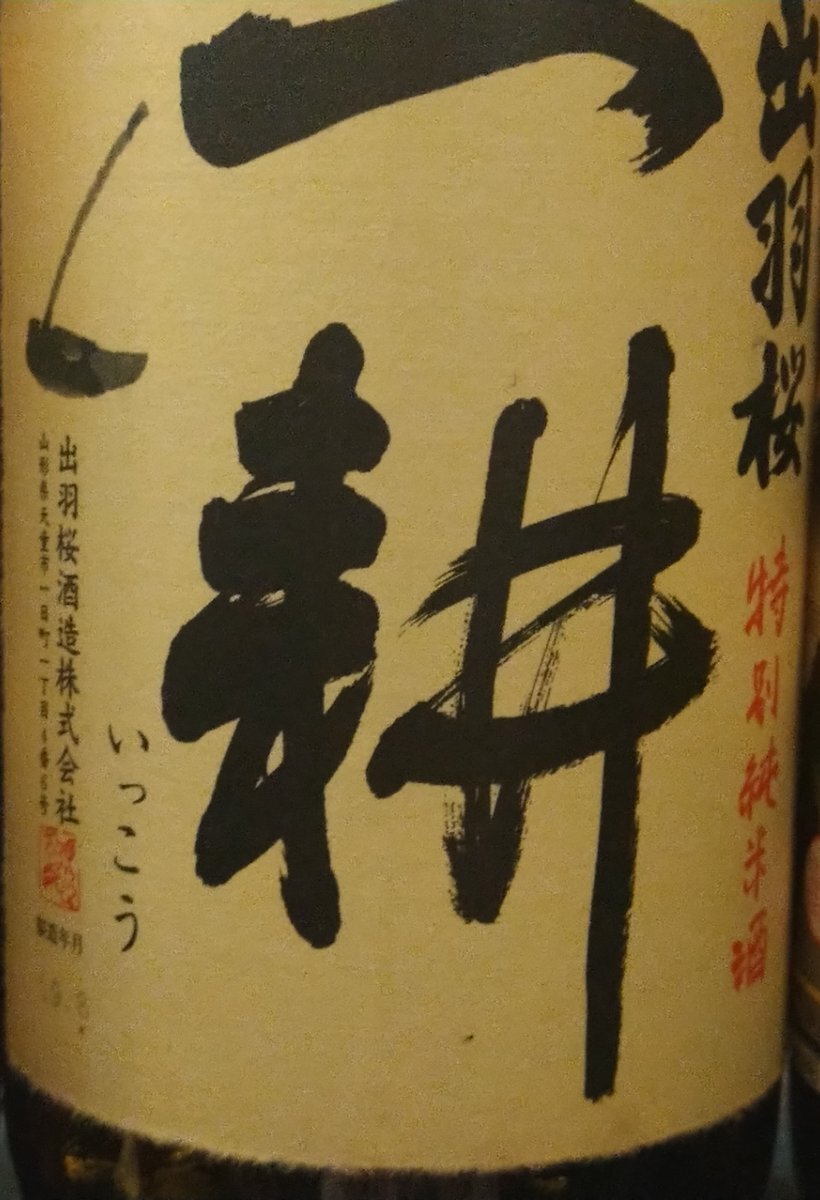 出羽桜
特別純米酒
一耕
いっこう
出羽桜酒造株式会社
山形県天童市一日町一丁目4番6号
製造年月